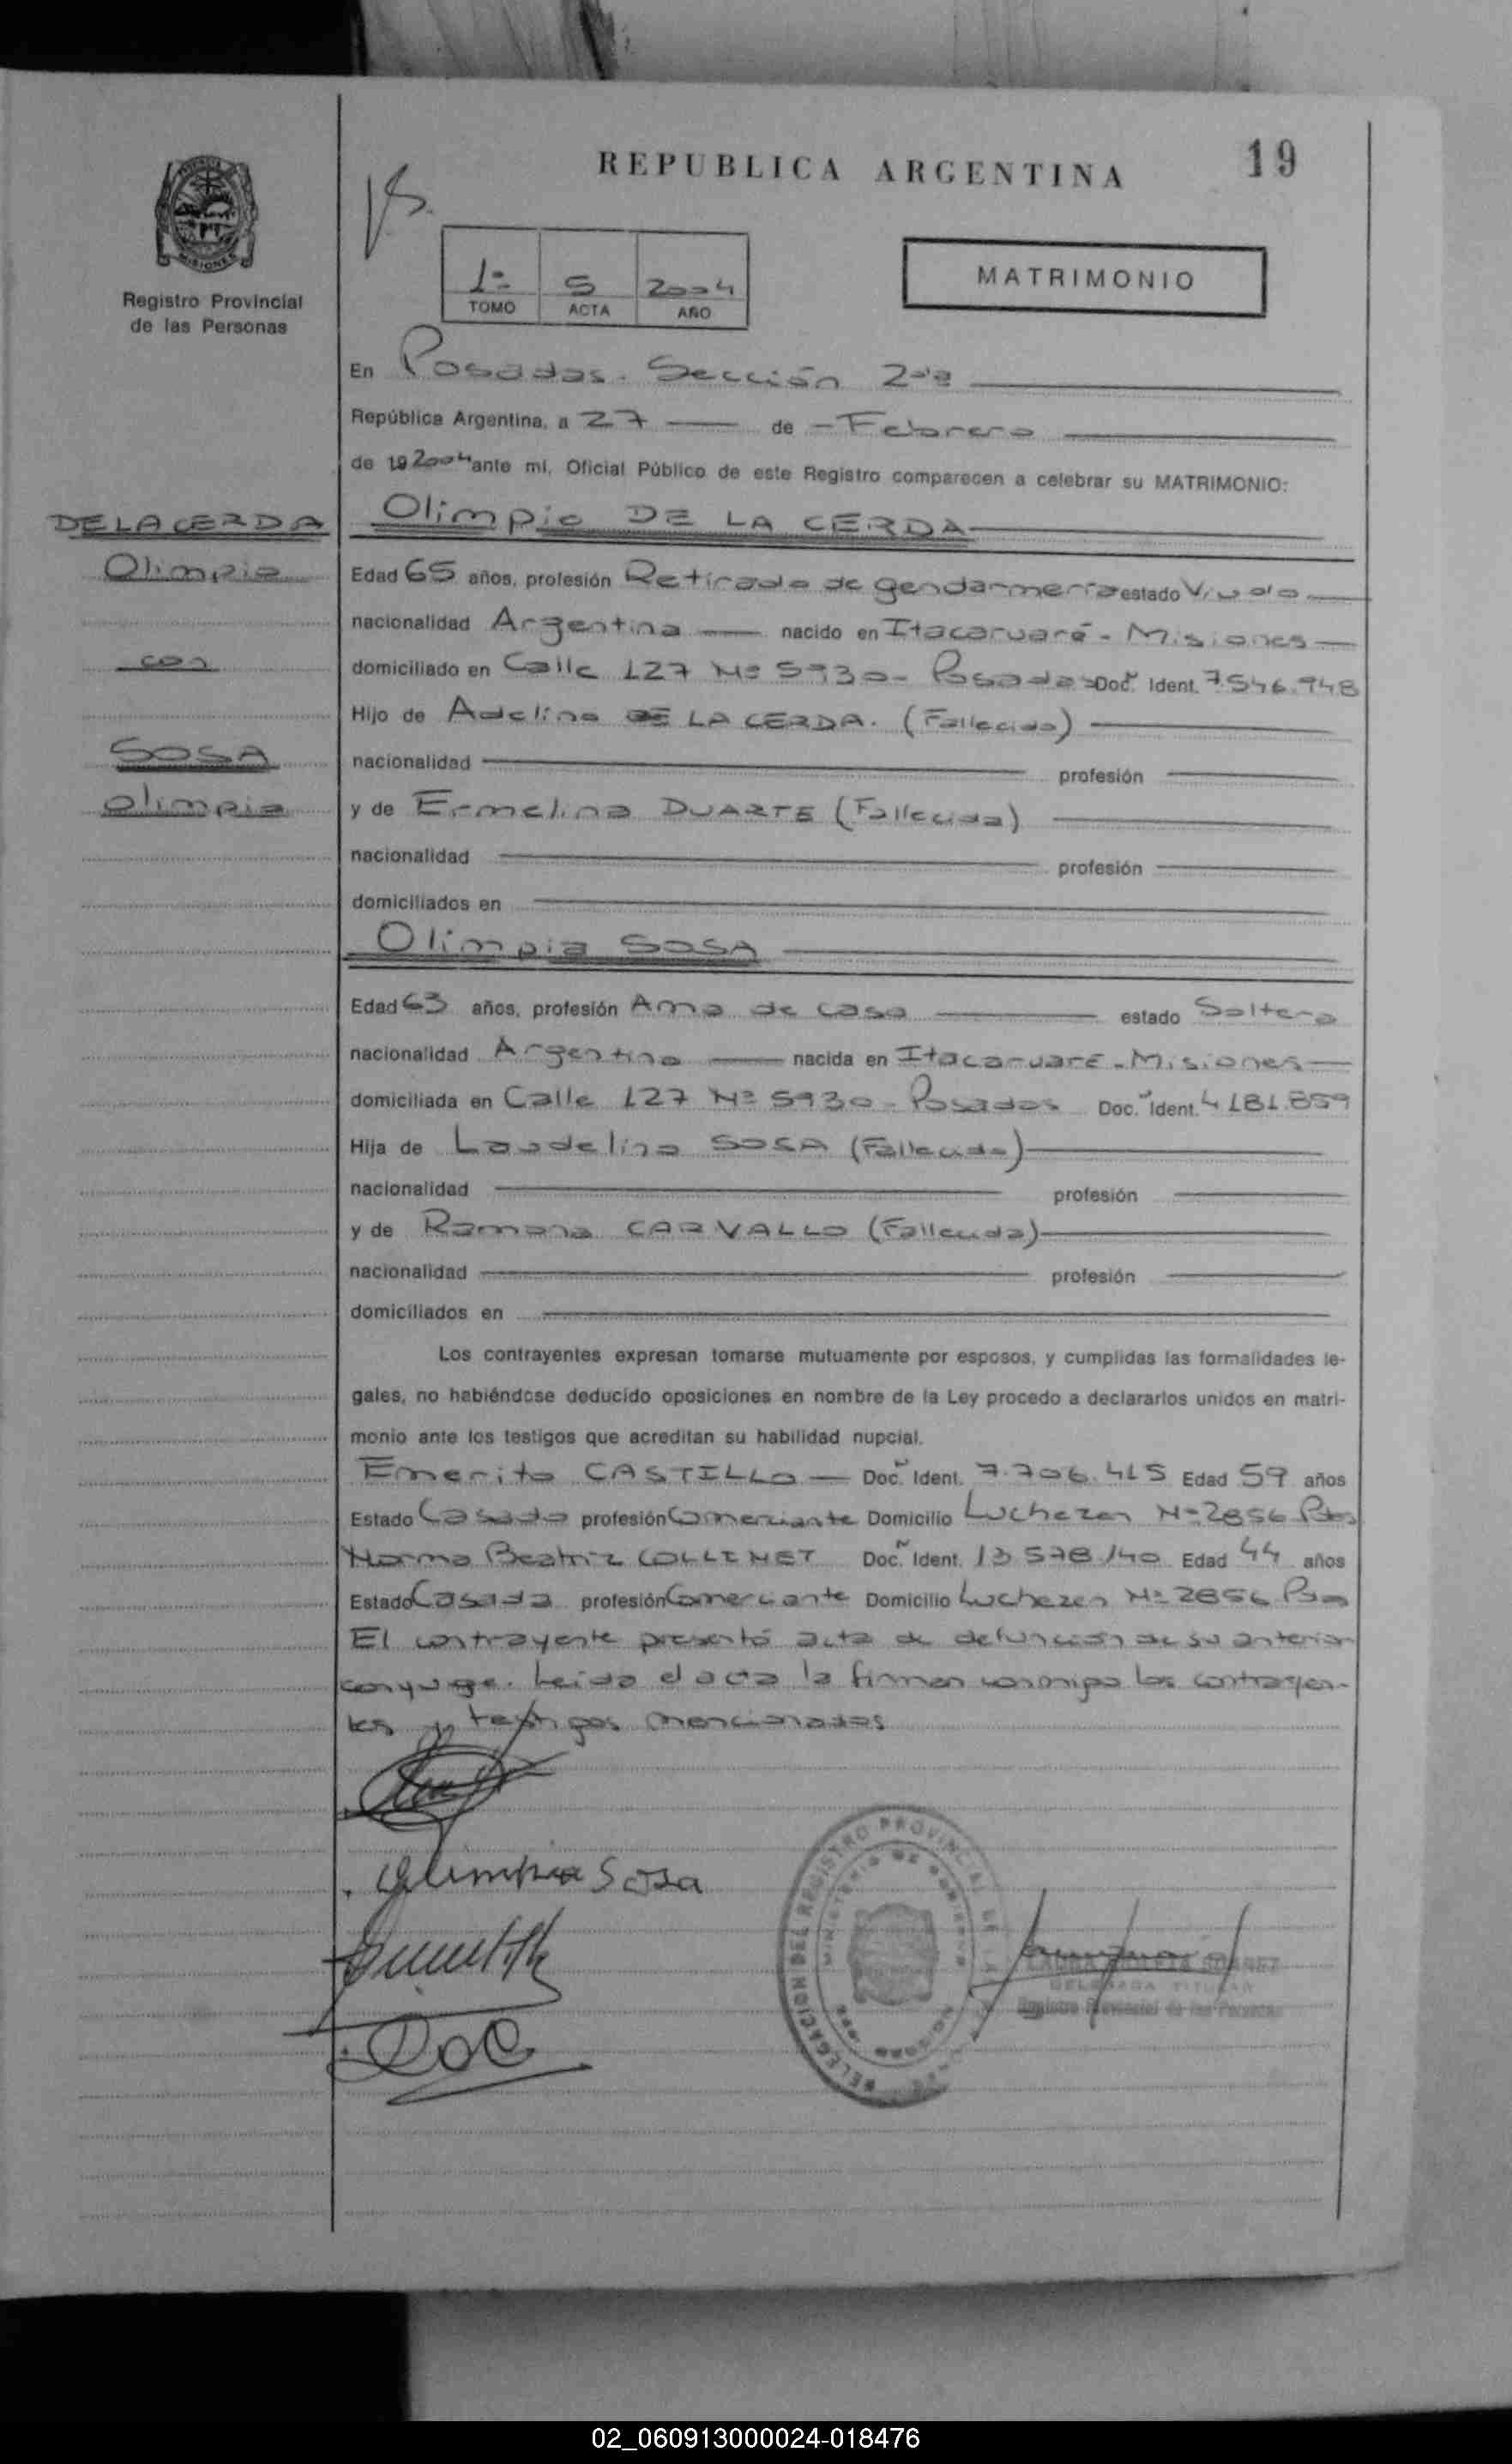 REPUBLICA ARGENTINA
19
MISIONES
Registro Provincial
de las Personas
1º
5
2004
TOMO
ACTA
AÑO
MATRIMONIO
En Posadas. Sección 2da
República Argentina, a 27 — de - Febrero
de 19 2004 ante mí, Oficial Público de este Registro comparecen a celebrar su MATRIMONIO:
DE LA CERDA
Olimpio
con
SOSA
Olimpia
Olimpio DE LA CERDA
Edad 65 años, profesión Retirado de gendarmería estado Viudo
nacionalidad Argentina — nacido en Itacaruaré - Misiones
domiciliado en Calle 127 Nº 5930 - Posadas Doc. Ident. 7.546.948
Hijo de Adelino DE LA CERDA. (Fallecido)
nacionalidad — profesión
y de Ermelina DUARTE (Fallecida)
nacionalidad — profesión
domiciliados en
Olimpia SOSA
Edad 63 años, profesión Ama de casa — estado Soltera
nacionalidad Argentina — nacida en Itacaruaré - Misiones
domiciliada en Calle 127 Nº 5930 - Posadas Doc. Ident. 4.181.859
Hija de Laudelino SOSA (Fallecido)
nacionalidad — profesión
y de Ramona CARVALLO (Fallecida)
nacionalidad — profesión
domiciliados en
Los contrayentes expresan tomarse mutuamente por esposos, y cumplidas las formalidades le-
gales, no habiéndose deducido oposiciones en nombre de la Ley procedo a declararlos unidos en matri-
monio ante los testigos que acreditan su habilidad nupcial.
Emerito CASTILLO — Doc. Ident. 7.706.415 Edad 59 años
Estado Casado profesión Comerciante Domicilio Luchezen Nº 2856 Pdas
Norma Beatriz COLLINET Doc. Ident. 13.578.140 Edad 44 años
Estado Casada profesión Comerciante Domicilio Luchezen Nº 2856 Pdas
El contrayente presentó acta de defunción de su anterior
conyuge. Leida el acta la firman conmigo los contrayen-
tes y testigos mencionados
Olimpia Sosa
DELEGACION DEL REGISTRO PROVINCIAL DE LA
MINISTERIO DE GOBIERNO
DELEGADA TITULAR
Registro Provincial de las Personas
02_060913000024-018476